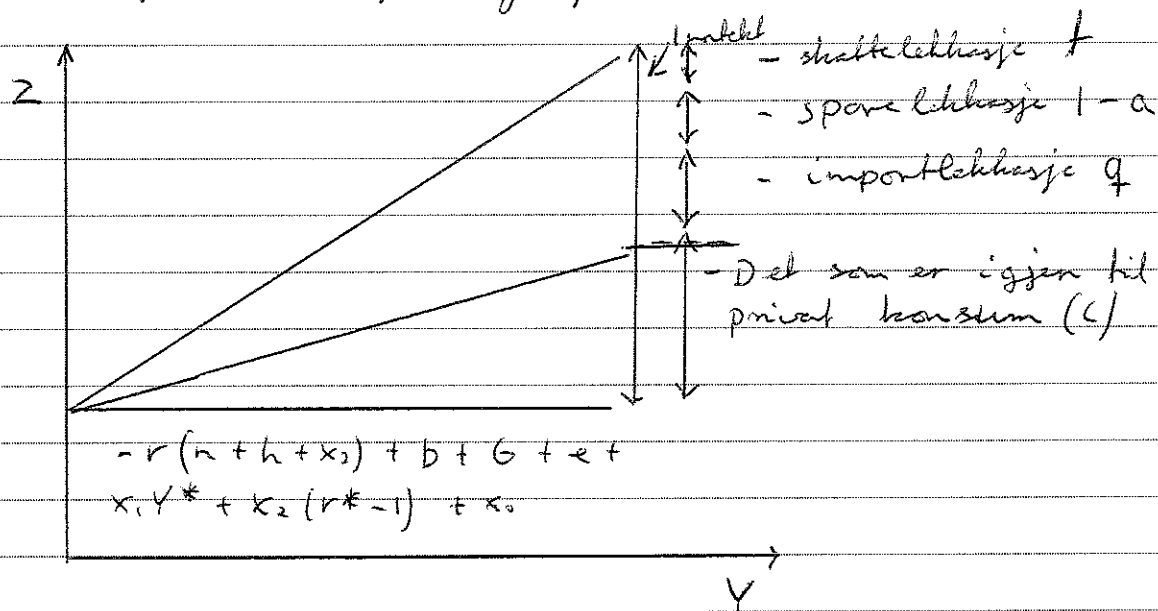 Z
Inntekt
- skattelekkasje t
- sparelekkasje 1-a
- importlekkasje q
- Det som er igjen til
privat konsum (C)
- r(n + h + x₂) + b + G + e +
x₁Y* + x₂(r*-1) + x₀
Y